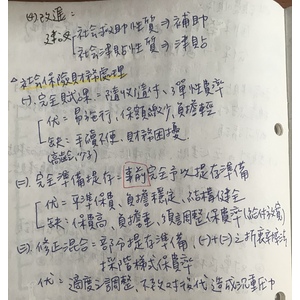 (四)改進:
建議 社會救助性質⇒補助
社會津貼性質⇒津貼
社會保險財務處理
(一)、完全賦課:隨收隨付、彈性費率
優:易施行、保額緩少,負擔輕
缺:手續不便、財務困擾
(高齡、少子)
(二)、完全準備提存:事前完全予以提存準備
優:平準保費、負擔穩定、結構健全
缺:保費高、負擔重、須調整保費率(給付改變)
(三)、修正混合:部分提存準備、(一)+(二)之折衷辦法
採階梯式保費率
優:適度之調整、不致對後代造成沉重壓力